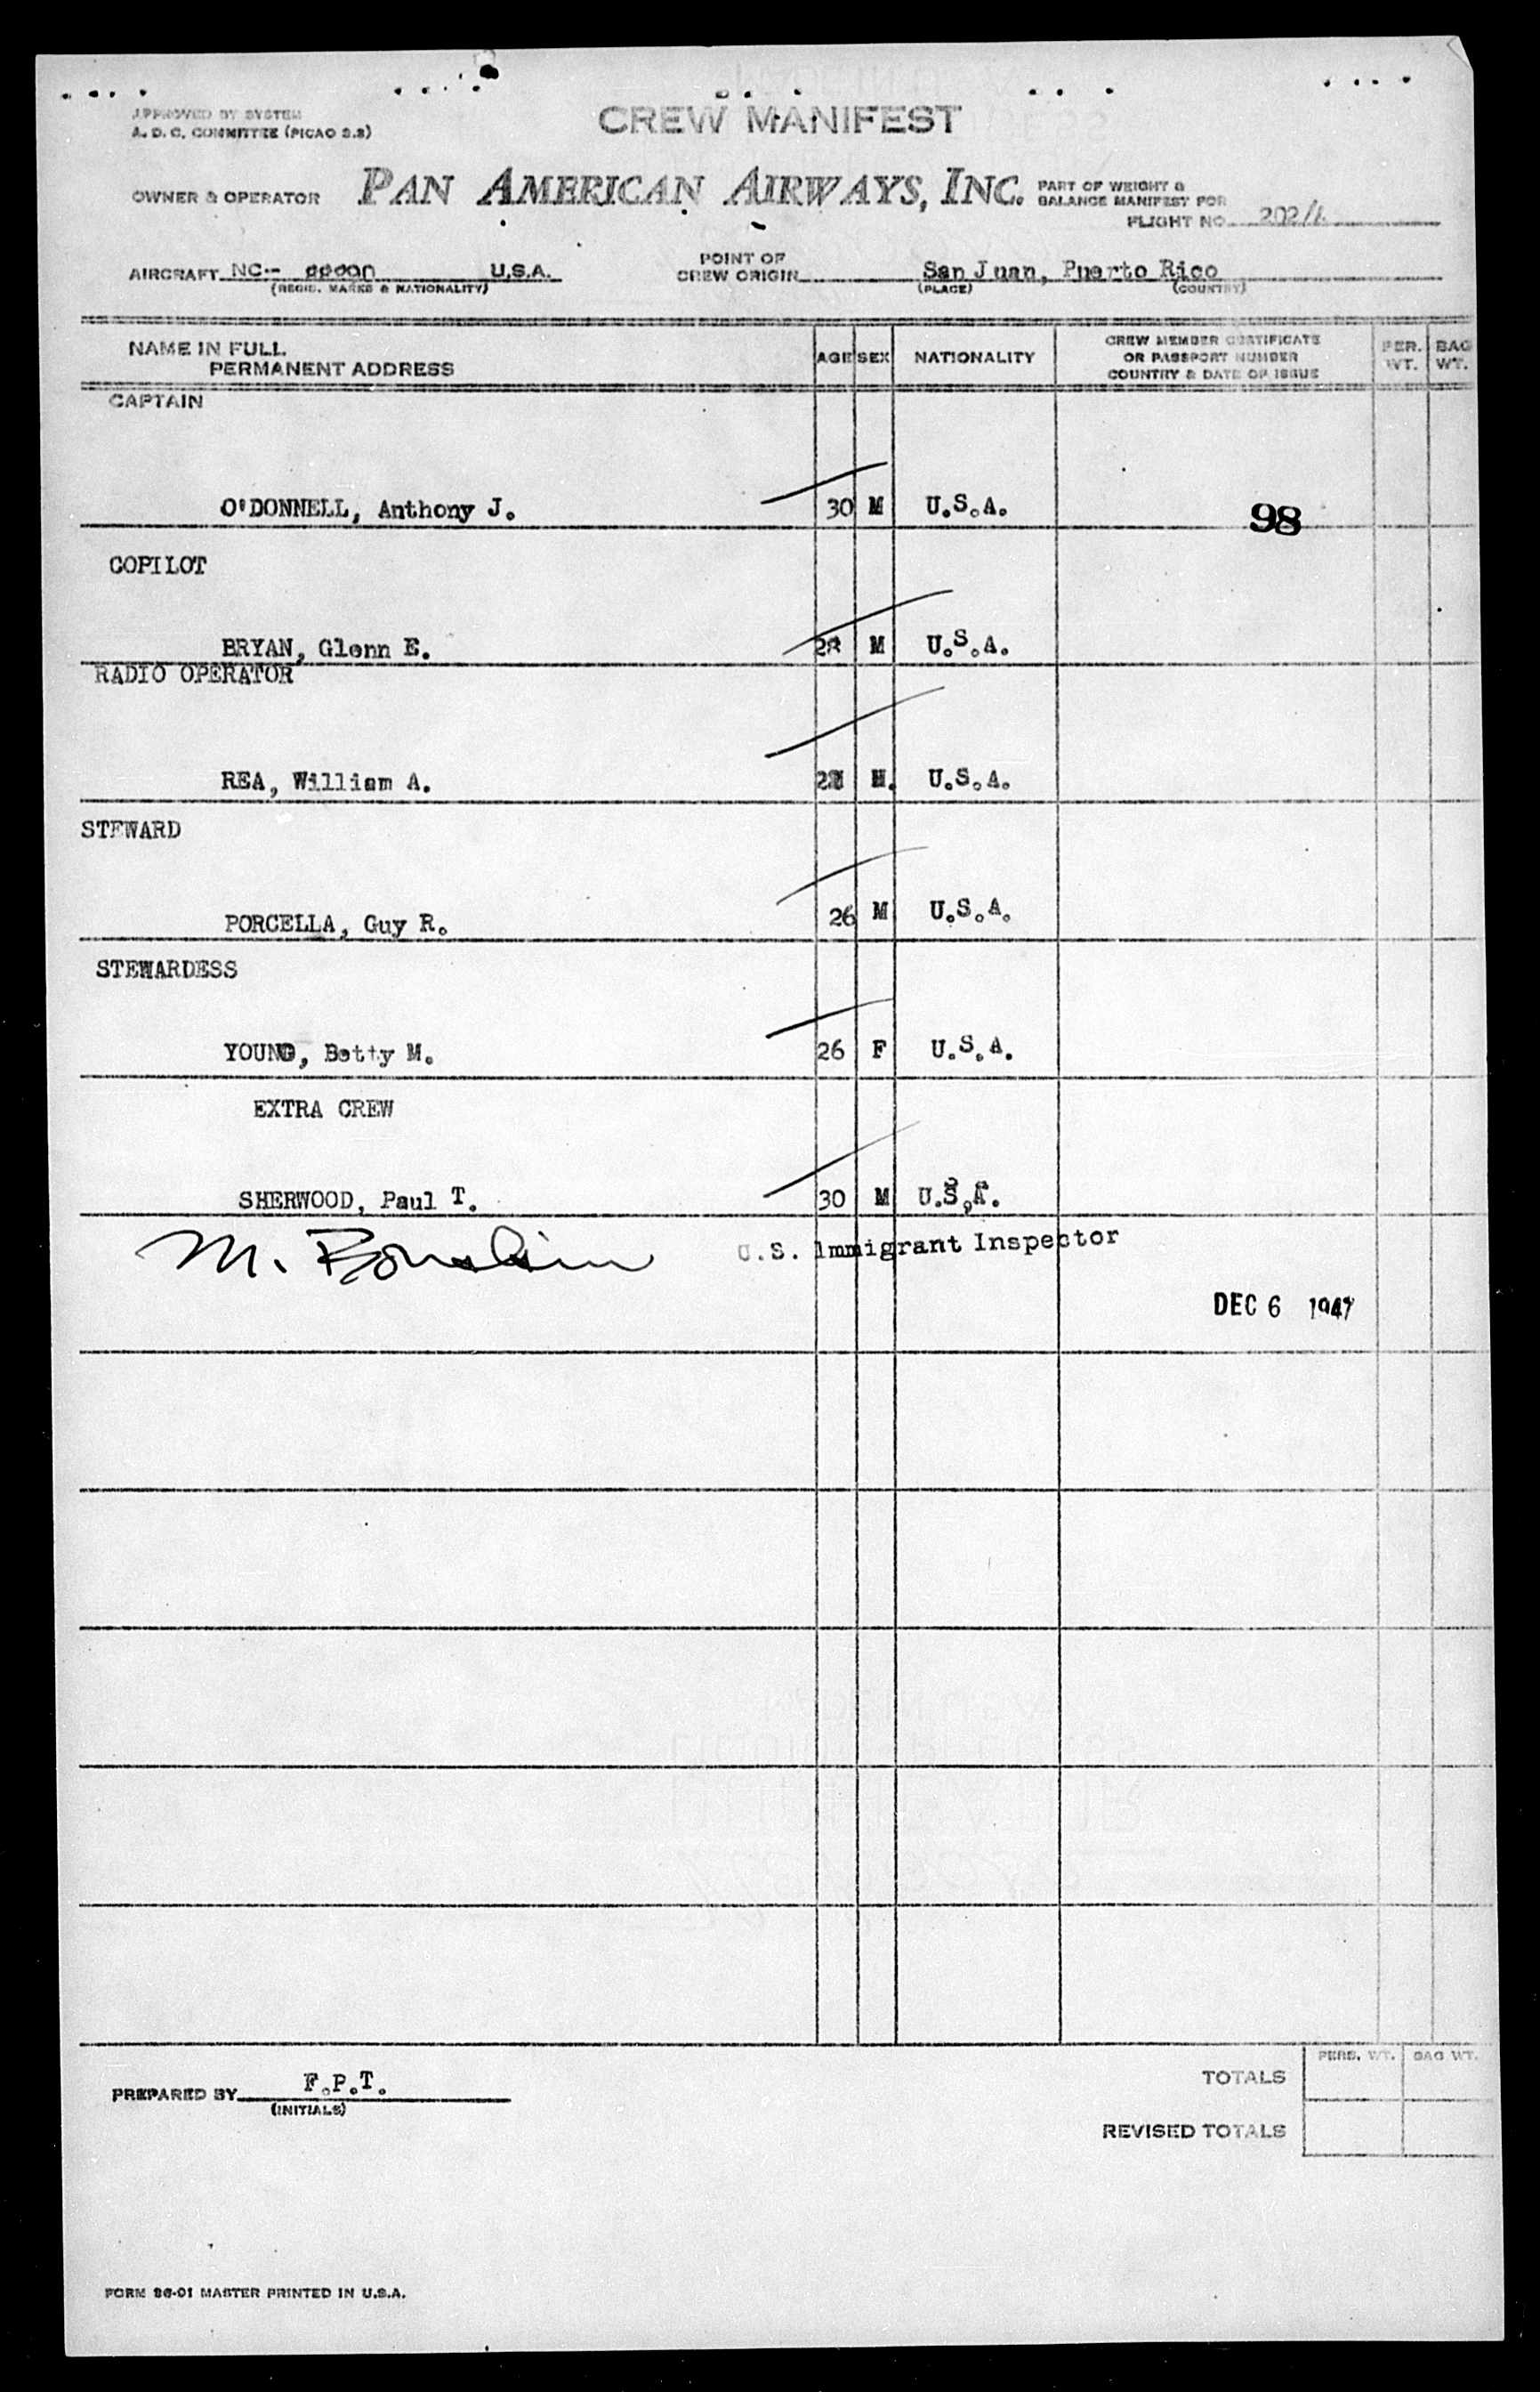 APPROVED BY SYSTEM
A. D. C. COMMITTEE (PICAO 2.2)
CREW MANIFEST
OWNER & OPERATOR PAN AMERICAN AIRWAYS, INC. PART OF WEIGHT &
BALANCE MANIFEST FOR
FLIGHT NO.
AIRCRAFT NC-- U.S.A. POINT OF
CREW ORIGIN San Juan, Puerto Rico
(REGIS. MARKS & NATIONALITY) (PLACE) (COUNTRY)
NAME IN FULL
PERMANENT ADDRESS
AGE SEX NATIONALITY
CREW MEMBER CERTIFICATE
OR PASSPORT NUMBER
COUNTRY & DATE OF ISSUE
PER.
WT.
BAG
WT.
CAPTAIN
O'DONNELL, Anthony J. 30 M U.S.A. 98
COPILOT
BRYAN, Glenn E. M U.S.A.
RADIO OPERATOR
REA, William A. M. U.S.A.
STEWARD
PORCELLA, Guy R. 26 M U.S.A.
STEWARDESS
YOUNG, Betty M. 26 F U.S.A.
EXTRA CREW
SHERWOOD, Paul T. 30 M U.S.A.
M. U.S. Immigrant Inspector
DEC 6 1947
PERS. WT. BAG WT.
TOTALS
PREPARED BY F.P.T.
(INITIALS)
REVISED TOTALS
FORM 26-01 MASTER PRINTED IN U.S.A.